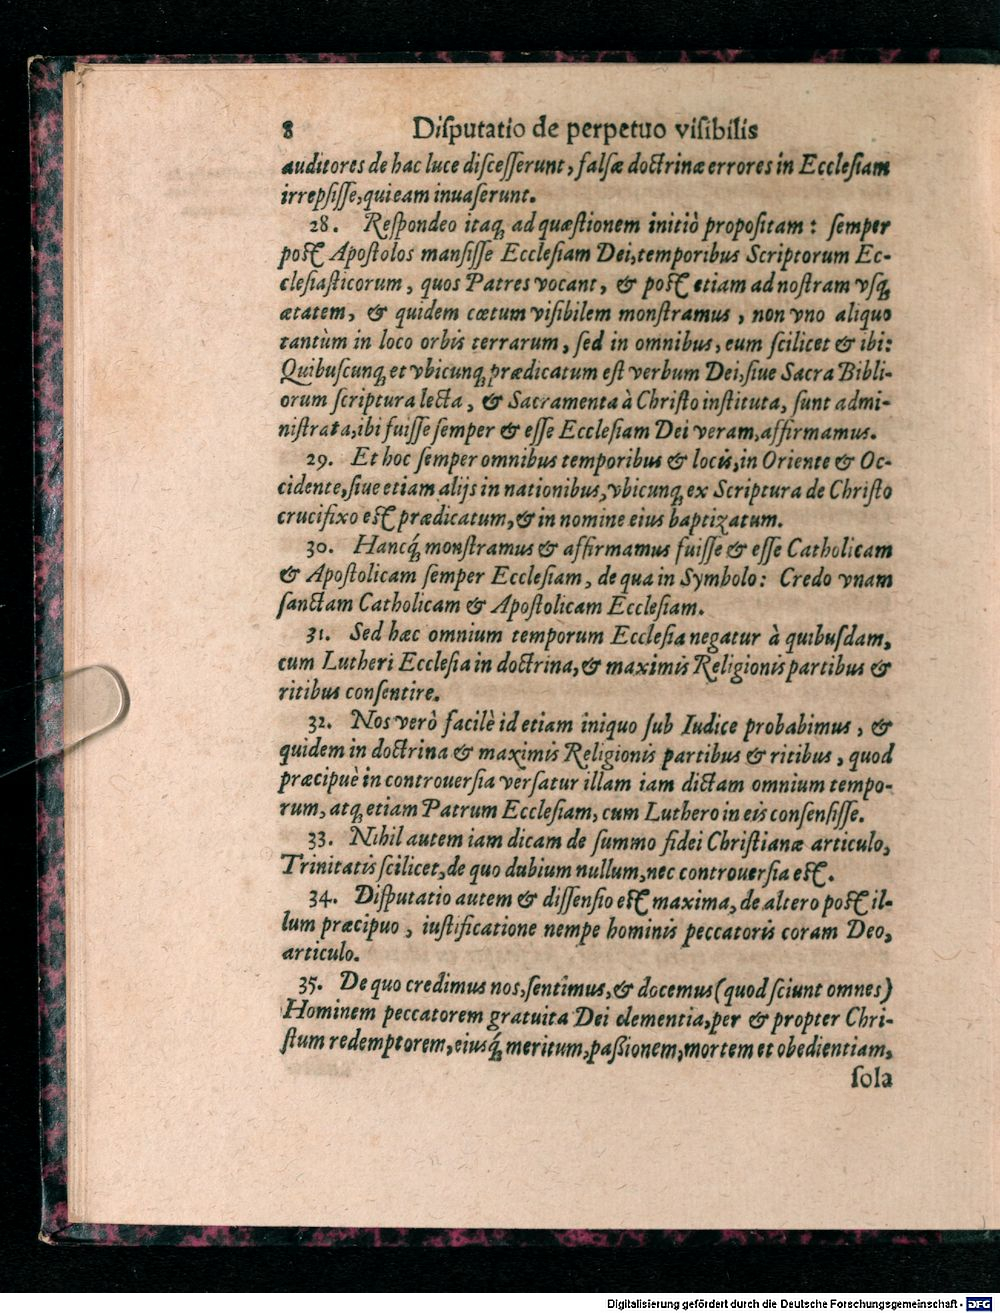 8 Diſputatio de perpetuo viſibilis
auditores de hac luce diſceſſerunt, falſæ doctrinæ errores in Eccleſiam
irrepſiſſe, qui eam inuaſerunt.
28. Reſpondeo itaq́; ad quæſtionem initiò propoſitam: ſemper
poſt Apoſtolos manſiſſe Eccleſiam Dei, temporibus Scriptorum Ec-
cleſiaſticorum, quos Patres vocant, & poſt etiam ad noſtram vſq;
ætatem, & quidem cœtum viſibilem monſtramus, non vno aliquo
tantùm in loco orbis terrarum, ſed in omnibus, eum ſcilicet & ibi:
Quibuſcunq; et vbicunq; prædicatum eſt verbum Dei, ſiue Sacra Bibli-
orum ſcriptura lecta, & Sacramenta à Chriſto inſtituta, ſunt admi-
niſtrata, ibi fuiſſe ſemper & eſſe Eccleſiam Dei veram, affirmamus.
29. Et hoc ſemper omnibus temporibus & locis, in Oriente & Oc-
cidente, ſiue etiam alijs in nationibus, vbicunq; ex Scriptura de Chriſto
crucifixo eſt prædicatum, & in nomine eius baptizatum.
30. Hancq́; monſtramus & affirmamus fuiſſe & eſſe Catholicam
& Apoſtolicam ſemper Eccleſiam, de qua in Symbolo: Credo vnam
ſanctam Catholicam & Apoſtolicam Eccleſiam.
31. Sed hæc omnium temporum Eccleſia negatur à quibuſdam,
cum Lutheri Eccleſia in doctrina, & maximis Religionis partibus &
ritibus conſentire.
32. Nos verò facilè id etiam iniquo ſub Iudice probabimus, &
quidem in doctrina & maximis Religionis partibus & ritibus, quod
præcipuè in controuerſia verſatur illam iam dictam omnium tempo-
rum, atq; etiam Patrum Eccleſiam, cum Luthero in eis conſenſiſſe.
33. Nihil autem iam dicam de ſummo fidei Chriſtianæ articulo,
Trinitatis ſcilicet, de quo dubium nullum, nec controuerſia eſt.
34. Diſputatio autem & diſſenſio eſt maxima, de altero poſt il-
lum præcipuo, iuſtificatione nempe hominis peccatoris coram Deo,
articulo.
35. De quo credimus nos, ſentimus, & docemus (quod ſciunt omnes)
Hominem peccatorem gratuita Dei clementia, per & propter Chri-
ſtum redemptorem, eiusq́; meritum, paßionem, mortem et obedientiam,
ſola
Digitalisierung gefördert durch die Deutsche Forschungsgemeinschaft - DFG